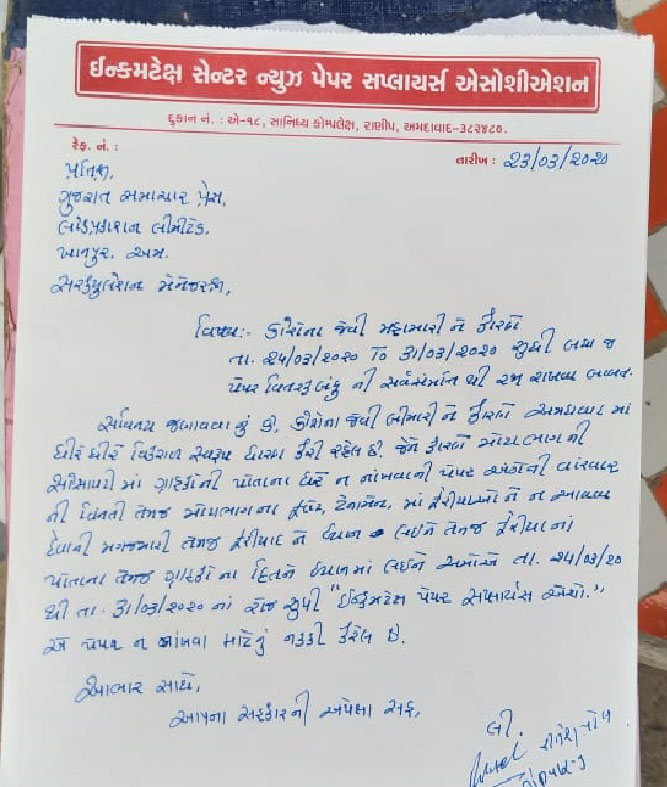 ઈન્કમટેક્ષ સેન્ટર ન્યુઝ પેપર સપ્લાયર્સ એસોશીએશન
દુકાન નં. : એ-૧૮, સાનિધ્ય કોમ્પલેક્ષ, રાણીપ, અમદાવાદ-૩૮૨૪૮૦.
રેફ. નં. :
તારીખ : ૨૩/૦૩/૨૦૨૦
પ્રતિશ્રી,
ગુજરાત સમાચાર પ્રેસ,
લોકપ્રકાશન લીમીટેડ.
ખાનપુર, અમ.
સરક્યુલેશન મેનેજરશ્રી,
વિષય:- કોરોના જેવી મહામારી ને કારણે
તા. ૨૫/૦૩/૨૦૨૦ TO ૩૧/૦૩/૨૦૨૦ સુધી બધા જ
પેપર વિતરકબંધુ ની સર્વસંમતિ થી રજા રાખવા બાબત.
સવિનય જણાવવાનું કે, કોરોના જેવી બીમારી ને કારણે અમદાવાદ માં
ધીરે ધીરે વિકરાળ સ્વરૂપ ધારણ કરી રહેલ છે. જેને કારણે મોટા ભાગ ની
સોસાયટી માં ગ્રાહકોની પોતાના ઘરે ન નાંખવાની પેપર અંગેની વારંવાર
ની વિનંતી તેમજ મોટાભાગના ફ્લેટ, ટેનામેન્ટ, માં ફેરીયાઓ ને ન આવવા
દેવાની મગજમારી તેમજ ફેરીયાદ ને ધ્યાન લઈને તેમજ ફેરીયાનાં
પોતાના તેમજ ગ્રાહકો ના હિતને ધ્યાનમાં લઈને અમોએ તા. ૨૫/૦૩/૨૦
થી તા. ૩૧/૦૩/૨૦૨૦ નાં રોજ સુધી "ઈન્કમટેક્ષ પેપર સપ્લાયર્સ એસો."
એ પેપર ન નાંખવા માટેનું નક્કી કરેલ છે.
આભાર સાથે,
આપના સહકારની અપેક્ષા સહ,
લી.